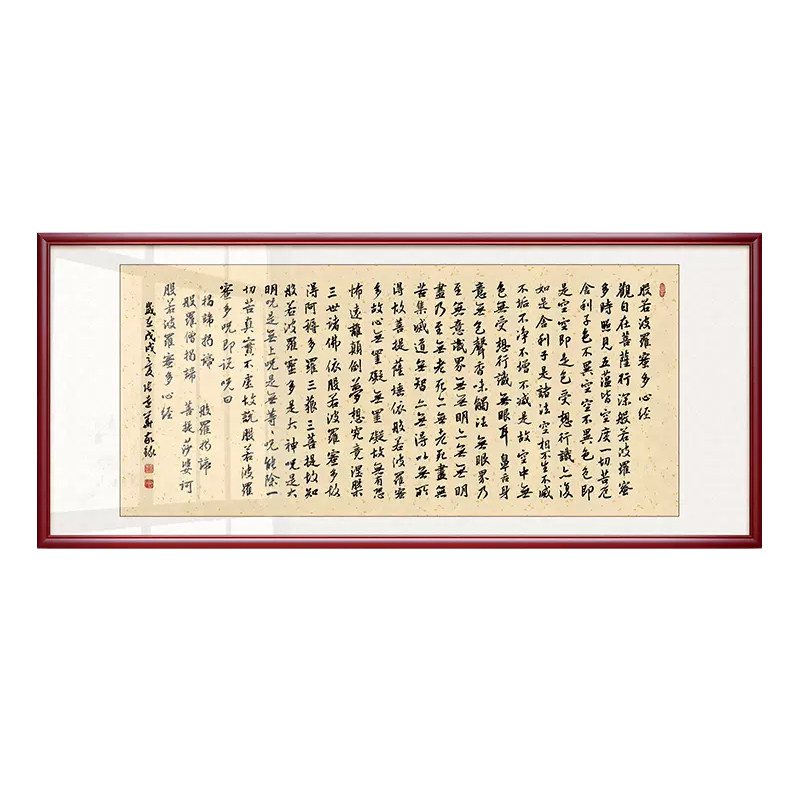 般若波羅蜜多心經
觀自在菩薩行深般若波羅蜜
多時照見五蘊皆空度一切苦厄
舍利子色不異空空不異色色即
是空空即是色受想行識亦復
如是舍利子是諸法空相不生不滅
不垢不淨不增不減是故空中無
色無受想行識無眼耳鼻舌身
意無色聲香味觸法無眼界乃
至無意識界無無明亦無無明
盡乃至無老死亦無老死盡無
苦集滅道無智亦無得以無所
得故菩提薩埵依般若波羅蜜
多故心無罣礙無罣礙故無有恐
怖遠離顛倒夢想究竟涅槃
三世諸佛依般若波羅蜜多故
得阿耨多羅三藐三菩提故知
般若波羅蜜多是大神呪是大
明呪是無上呪是無等々呪能除一
切苦真實不虛故說般若波羅
蜜多呪即說呪曰
揭諦揭諦 般羅揭諦
般羅僧揭諦 菩提莎婆訶
般若波羅蜜多心經
歲在戊戌之夏